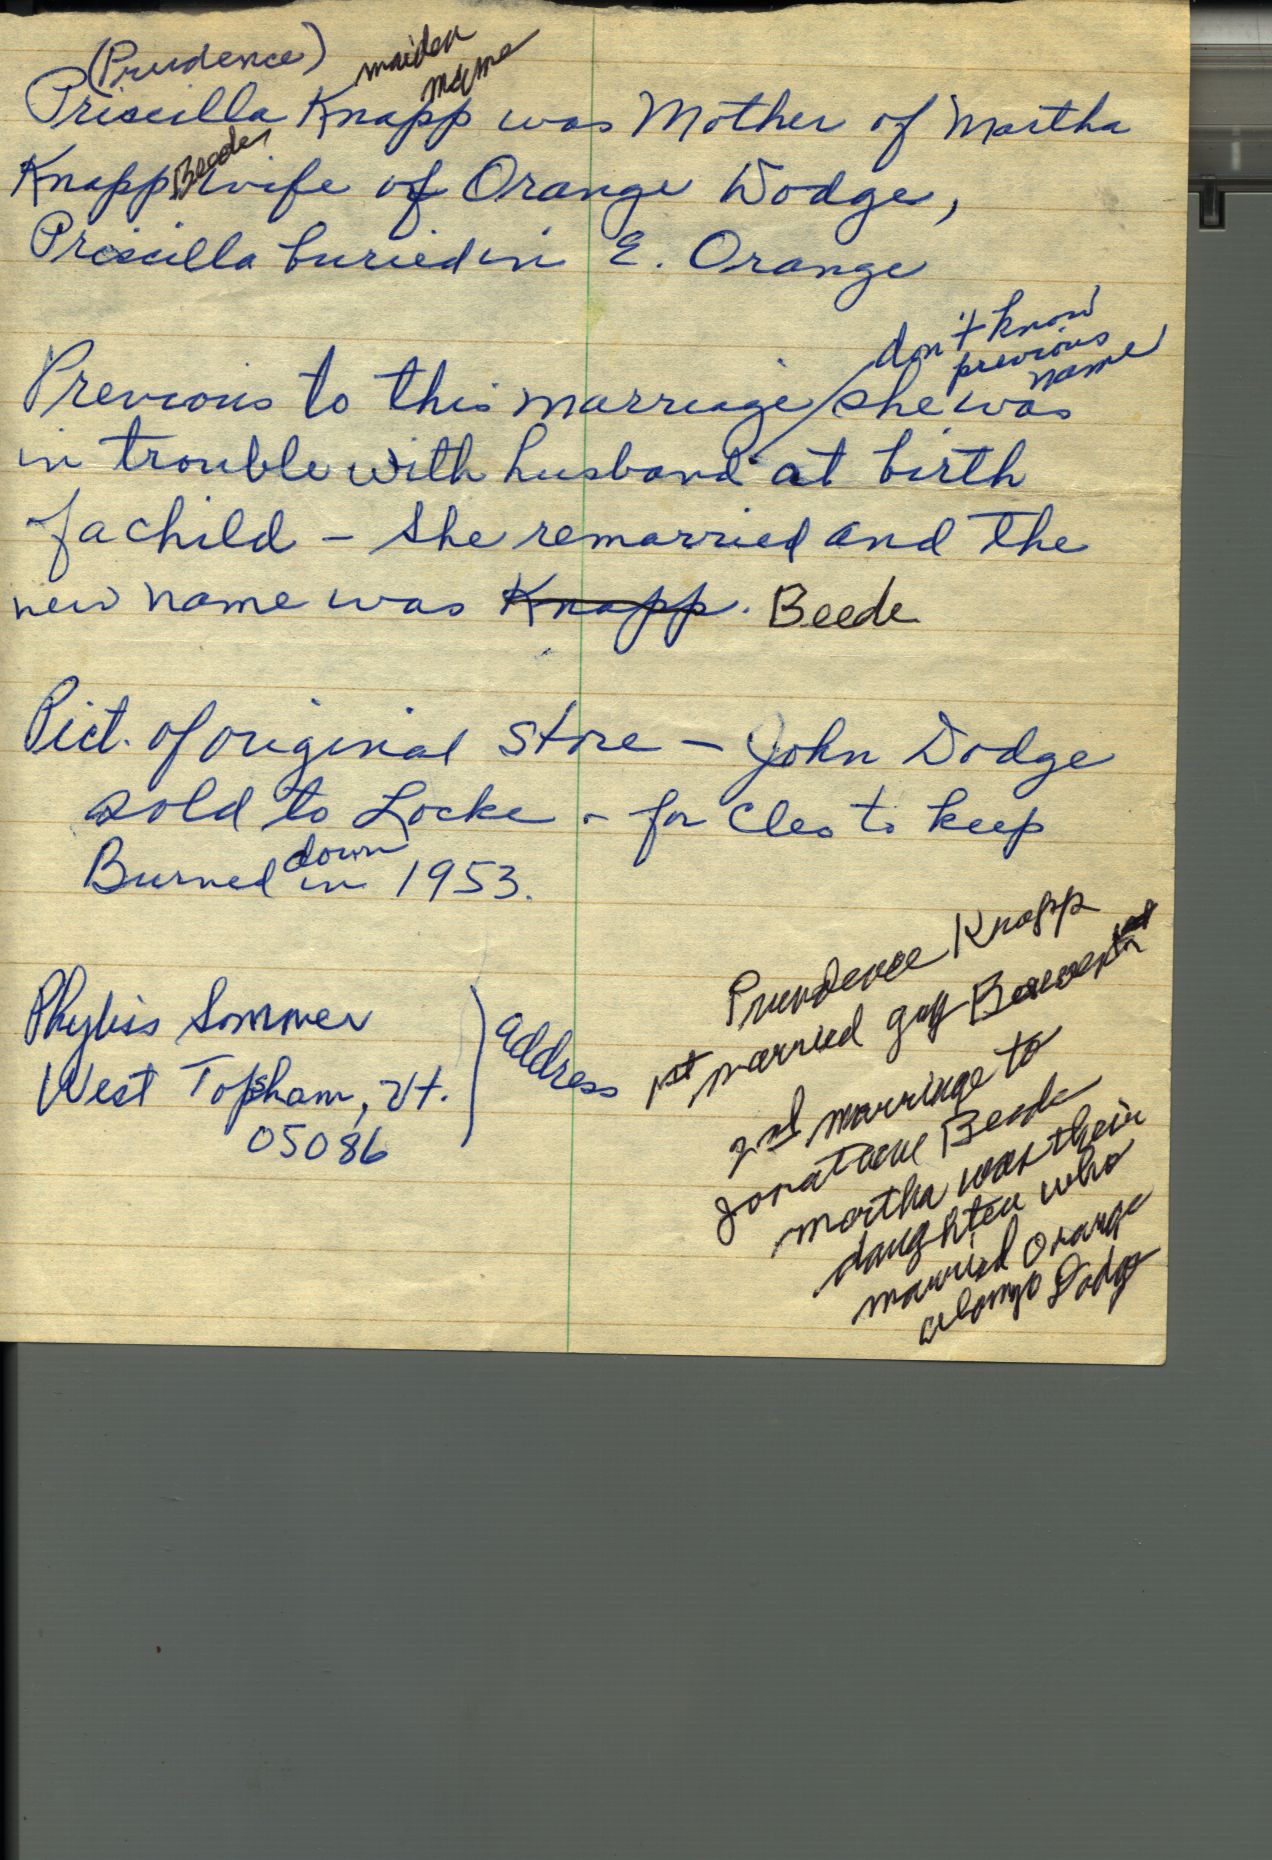 (Prudence)
maiden
name
Priscilla Knapp was Mother of Martha
Beede
Knapp wife of Orange Dodge,
Priscilla buried in E. Orange
don't know
previous
name
Previous to this marriage she was
in trouble with husband at birth
of a child - She remarried and the
new name was Knapp. Beede
Pict. of original store - John Dodge
sold to Locke - for Cleo to keep
down
Burned in 1953.
Phyliss Sommer
West Topsham, Vt.
05086
address
Prundence Knapp
1st married guy
2nd marriage to
Jonathan Beede
martha was their
daughter who
married Orange
alonzo Dodge